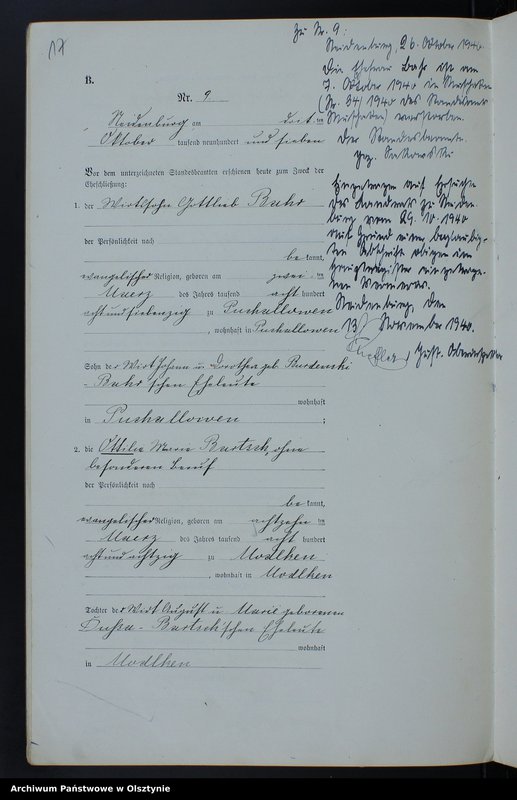 17
B.
Nr. 9
Neidenburg am
Oktober tausend neunhundert und sieben
Vor dem unterzeichneten Standesbeamten erschienen heute zum Zweck der
Eheschließung:
1. der Wirtssohn Gottlieb Bahr
der Persönlichkeit nach
be kannt,
evangelischer Religion, geboren am zwei im
Maerz des Jahres tausend acht hundert
acht und siebenzig zu Puchallowen
, wohnhaft in Puchallowen
Sohn der Wirt Johann u. Dorothea geb. Burdenski
- Bahr'schen Eheleute
wohnhaft
in Puchallowen ;
2. die Ottilie Marie Bartsch, ohne
besonderen Beruf
der Persönlichkeit nach
be kannt,
evangelischer Religion, geboren am achtzehn im
Maerz des Jahres tausend acht hundert
acht und achtzig zu Modlken
, wohnhaft in Modlken
Tochter der Wirt August u. Marie geborenen
- Bartsch'schen Eheleute
wohnhaft
in Modlken
Zu Nr. 9:
Neidenburg, 26. Oktober 1940.
Die Ehefrau Bahr ist am
7. Oktober 1940 in
(Nr. 34/1940 des Standesamts
) verstorben.
Der Standesbeamte.
gez. Sakowski
Eingetragen auf Ersuchen
des Landrats zu Neiden-
burg vom 29.10.1940
auf Grund einer beglaubig-
ten Abschrift obigen im
Hauptregister eingetrage-
nen Vermerks.
Neidenburg, den
13. November 1940.
Just. Obersekretär
Archiwum Państwowe w Olsztynie